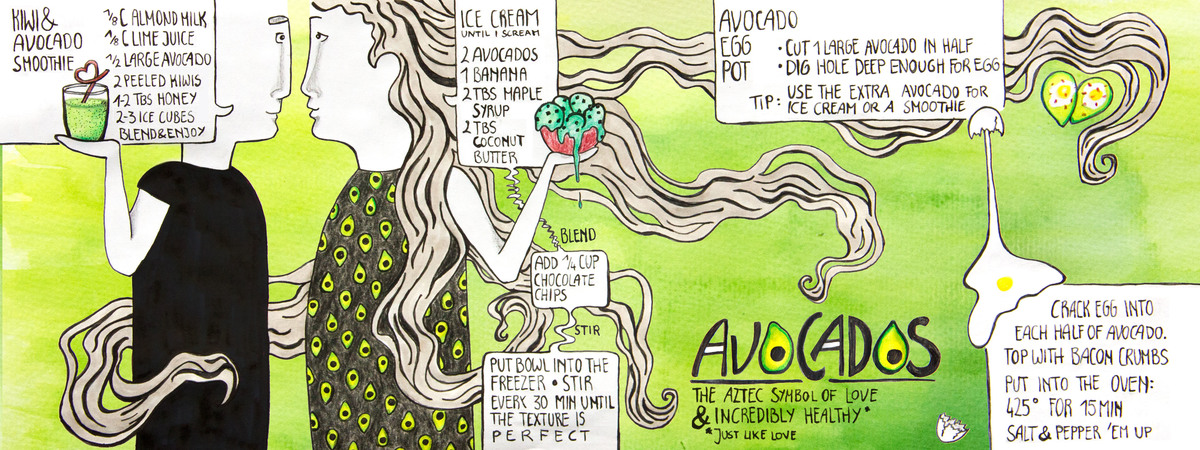 KIWI &
AVOCADO
SMOOTHIE
⅛ C ALMOND MILK
⅛ C LIME JUICE
½ LARGE AVOCADO
2 PEELED KIWIS
1-2 TBS HONEY
2-3 ICE CUBES
BLEND & ENJOY
ICE CREAM
UNTIL I SCREAM
2 AVOCADOS
1 BANANA
2 TBS MAPLE
SYRUP
2 TBS
COCONUT
BUTTER
BLEND
ADD ¼ CUP
CHOCOLATE
CHIPS
STIR
PUT BOWL INTO THE
FREEZER • STIR
EVERY 30 MIN UNTIL
THE TEXTURE IS
PERFECT
AVOCADO
EGG
POT
• CUT 1 LARGE AVOCADO IN HALF
• DIG HOLE DEEP ENOUGH FOR EGG
TIP: USE THE EXTRA AVOCADO FOR
ICE CREAM OR A SMOOTHIE
CRACK EGG INTO
EACH HALF OF AVOCADO.
TOP WITH BACON CRUMBS
PUT INTO THE OVEN:
425° FOR 15 MIN
SALT & PEPPER 'EM UP
AVOCADOS
THE AZTEC SYMBOL OF LOVE
& INCREDIBLY HEALTHY*
*JUST LIKE LOVE